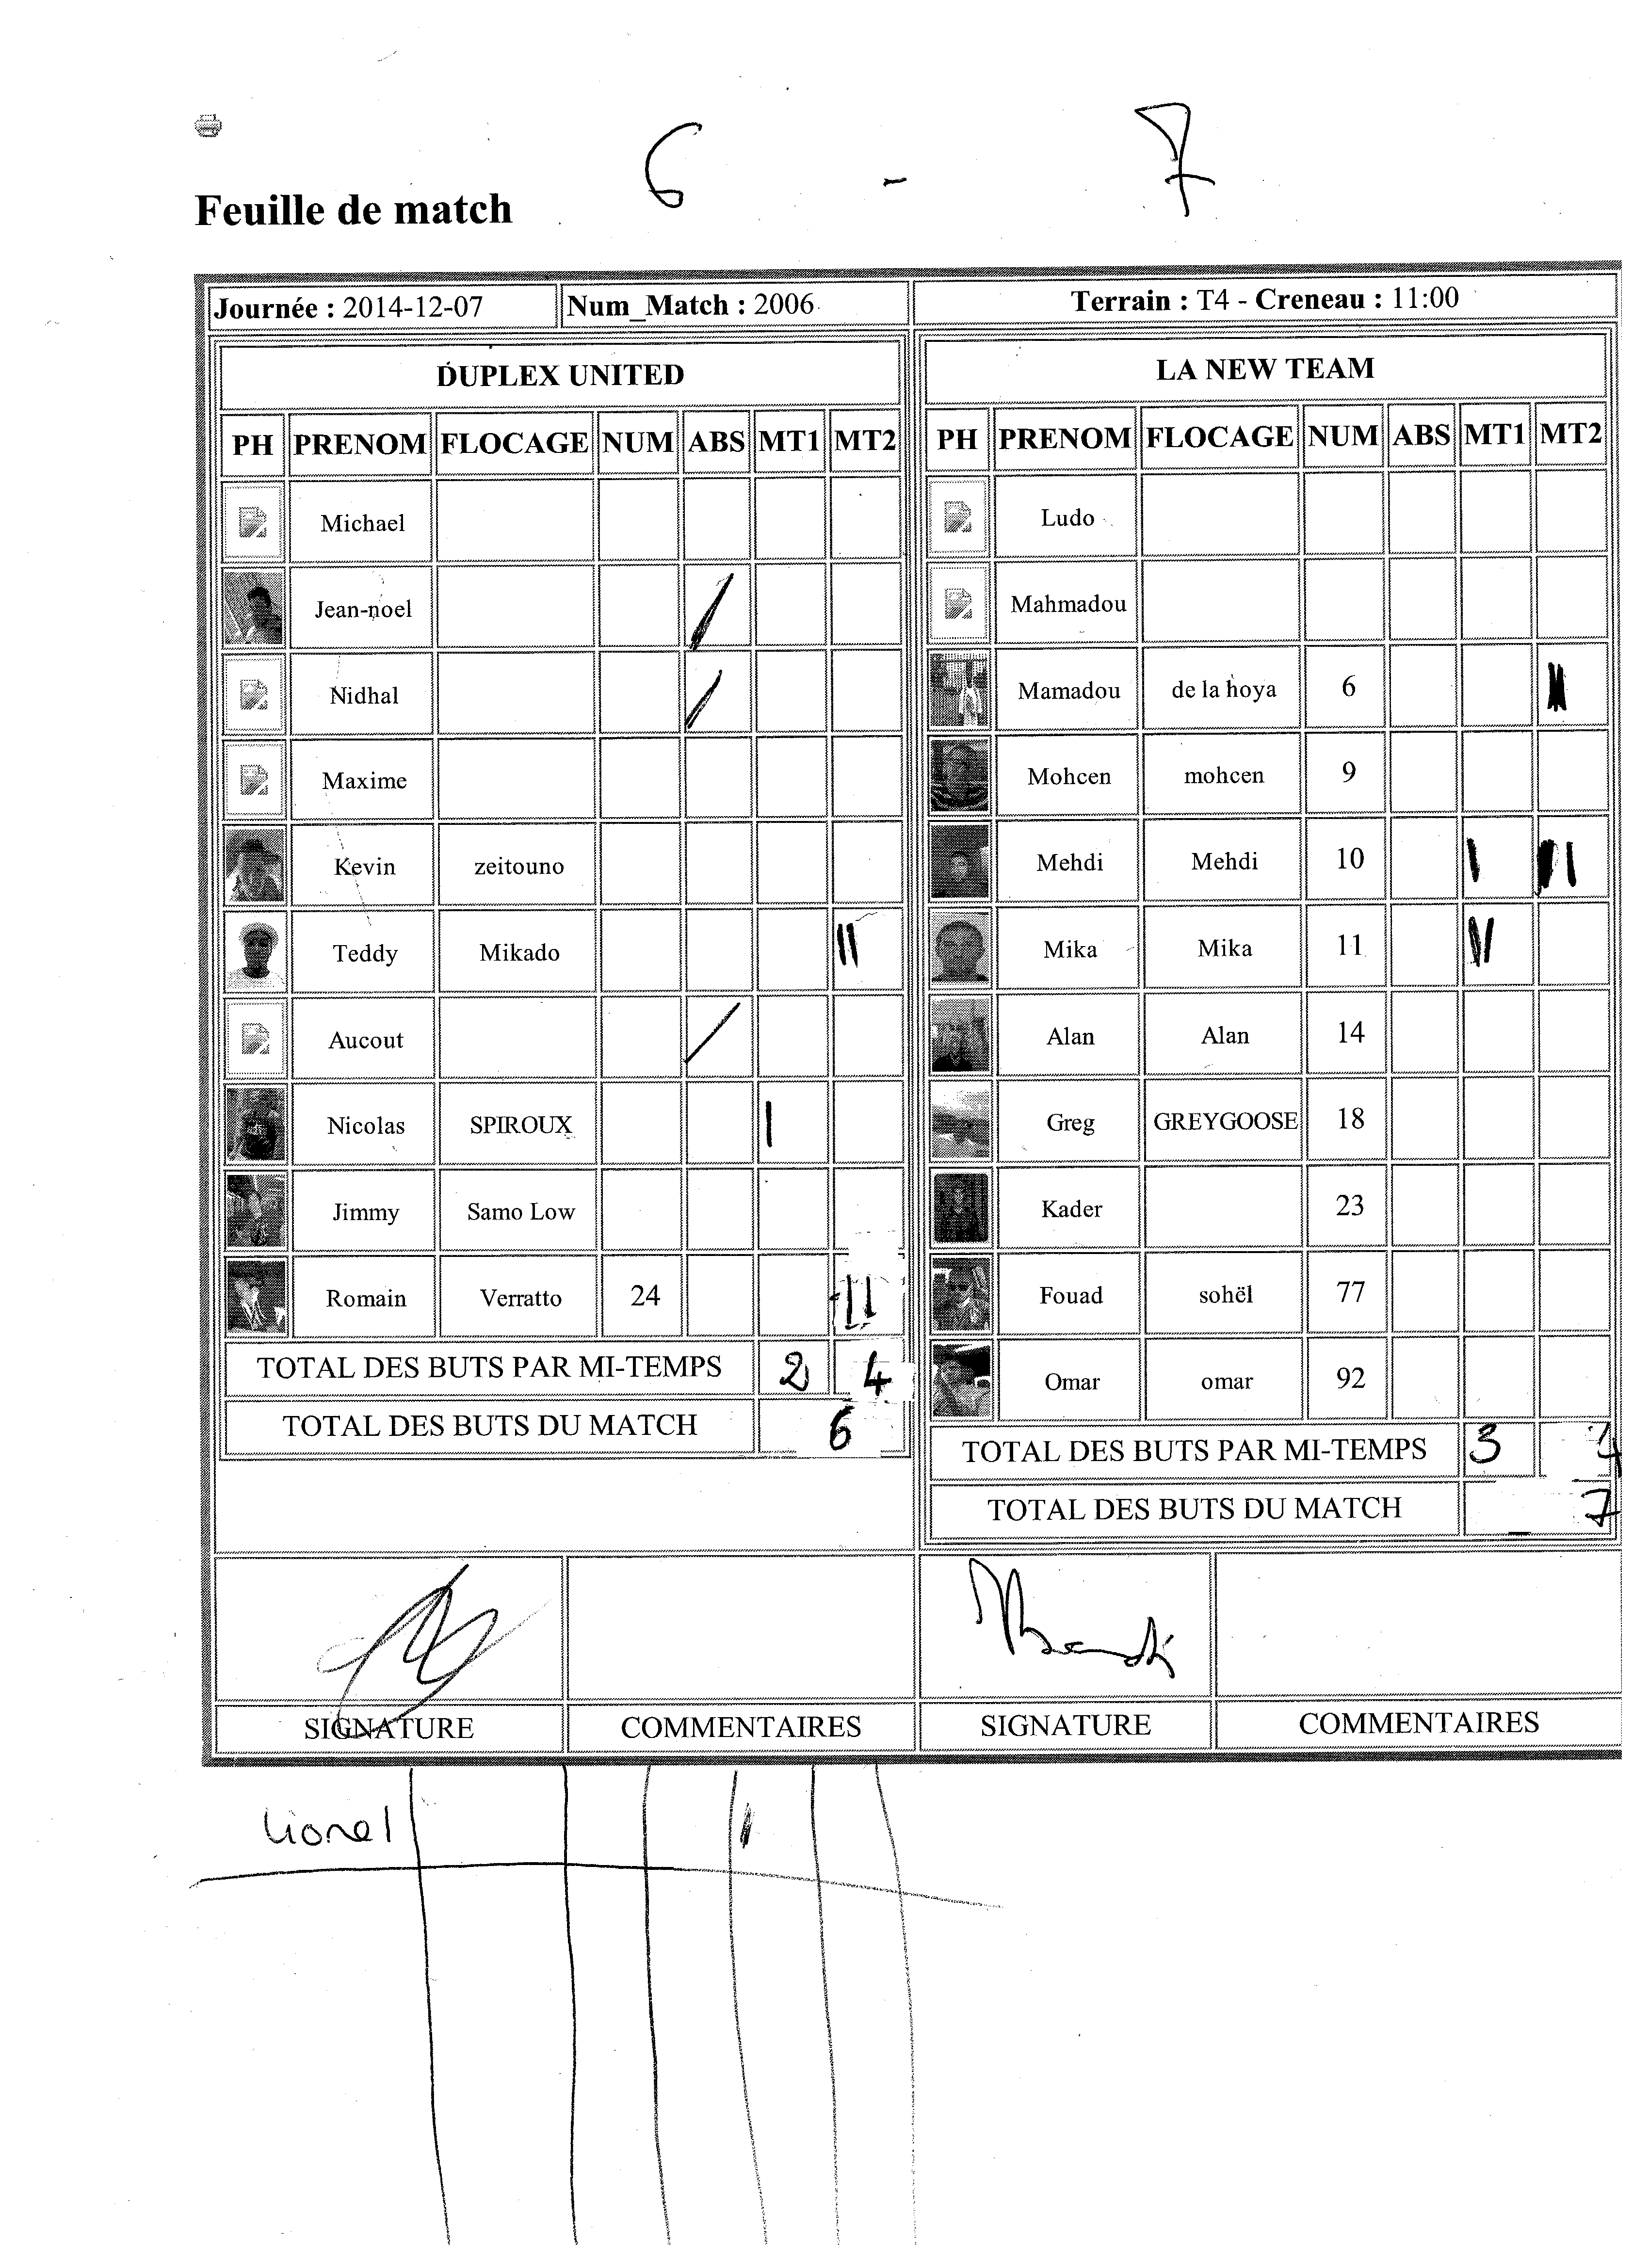 6 - 7
Feuille de match
Journée : 2014-12-07 Num_Match : 2006 Terrain : T4 - Creneau : 11:00
DUPLEX UNITED
PH PRENOM FLOCAGE NUM ABS MT1 MT2
Michael
Jean-noel /
Nidhal /
Maxime
Kevin zeitouno
Teddy Mikado II
Aucout /
Nicolas SPIROUX I
Jimmy Samo Low
Romain Verratto 24 II
TOTAL DES BUTS PAR MI-TEMPS 2 4
TOTAL DES BUTS DU MATCH 6
LA NEW TEAM
PH PRENOM FLOCAGE NUM ABS MT1 MT2
Ludo
Mahmadou
Mamadou de la hoya 6
Mohcen mohcen 9
Mehdi Mehdi 10 I
Mika Mika 11 II
Alan Alan 14
Greg GREYGOOSE 18
Kader 23
Fouad sohël 77
Omar omar 92
TOTAL DES BUTS PAR MI-TEMPS 3 4
TOTAL DES BUTS DU MATCH 7
SIGNATURE COMMENTAIRES SIGNATURE COMMENTAIRES
Lionel I